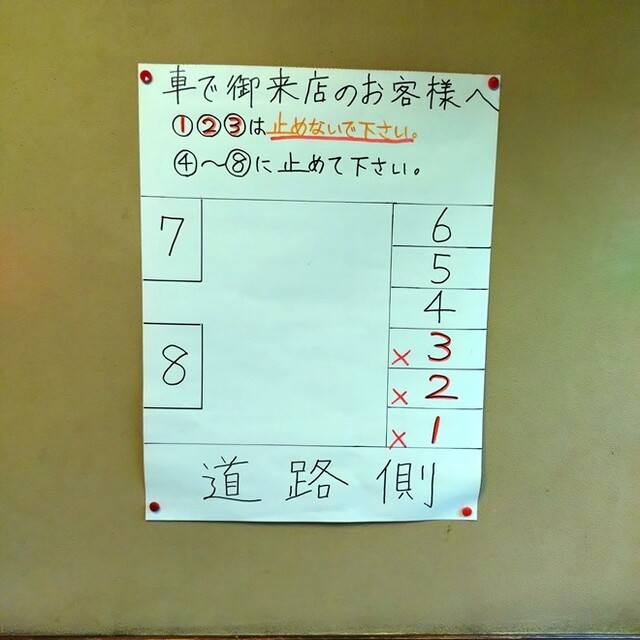 車で御来店のお客様へ
①②③は止めないで下さい。
④～⑧に止めて下さい。
7
8
6
5
4
× 3
× 2
× 1
道路側